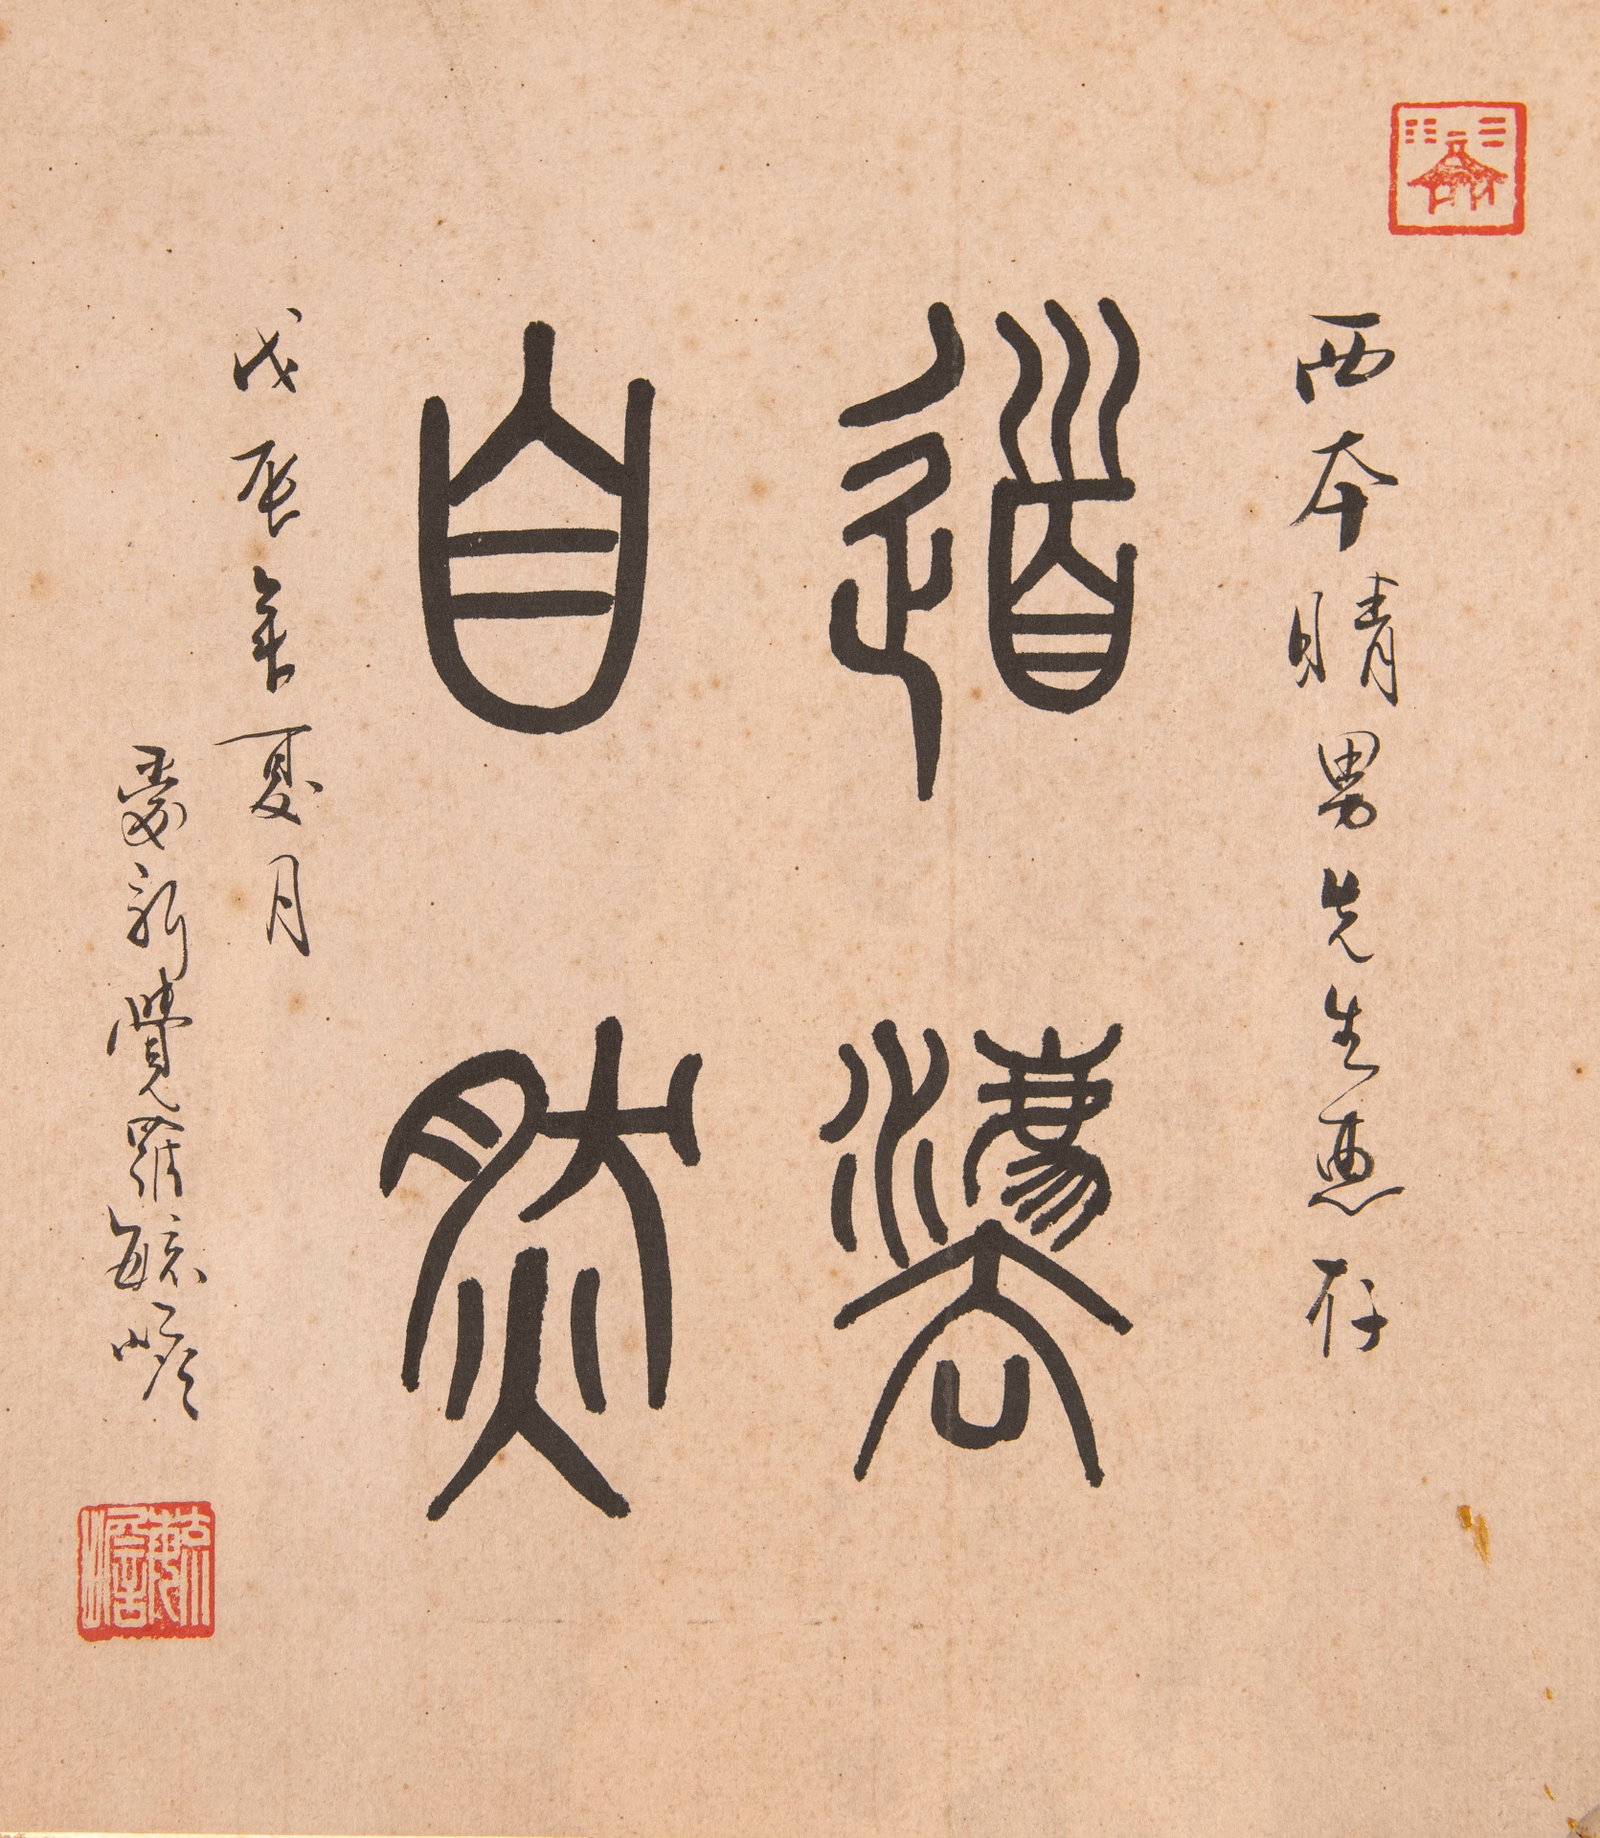 西本晴男先生惠存
道灋
自然
戊辰年夏月
愛新覺羅毓嶦
毓嶦